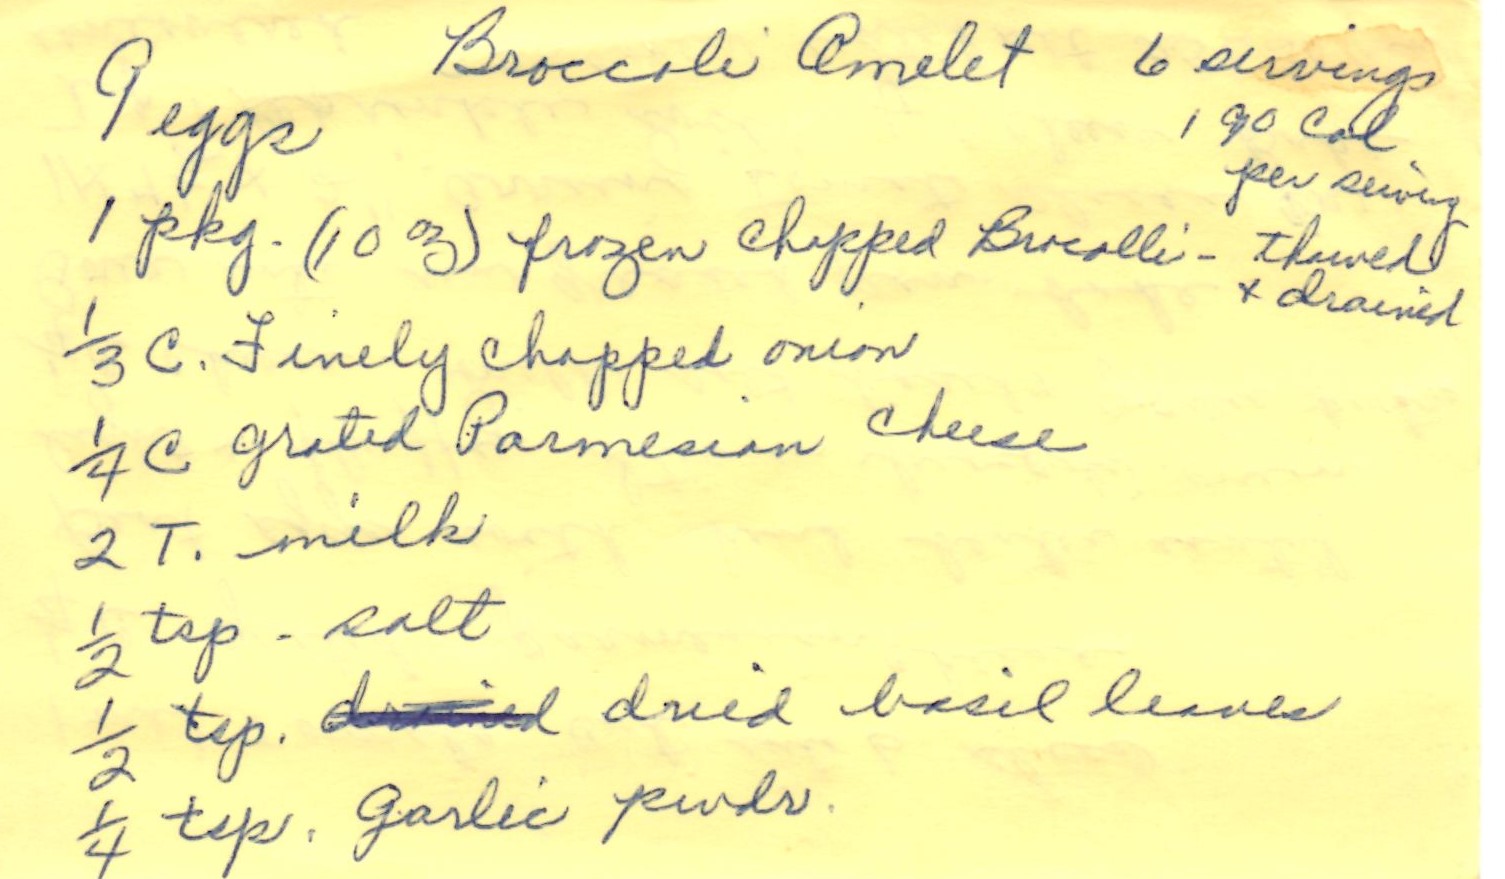 Broccoli Omelet 6 servings
190 Cal
per serving
9 eggs
1 pkg. (10 oz) frozen chopped Brocolli - thawed
& drained
1/3 C. Finely chopped onion
1/4 C grated Parmesian cheese
2 T. milk
1/2 tsp - salt
1/2 tsp. drained dried basil leaves
1/4 tsp. Garlic pwdr.